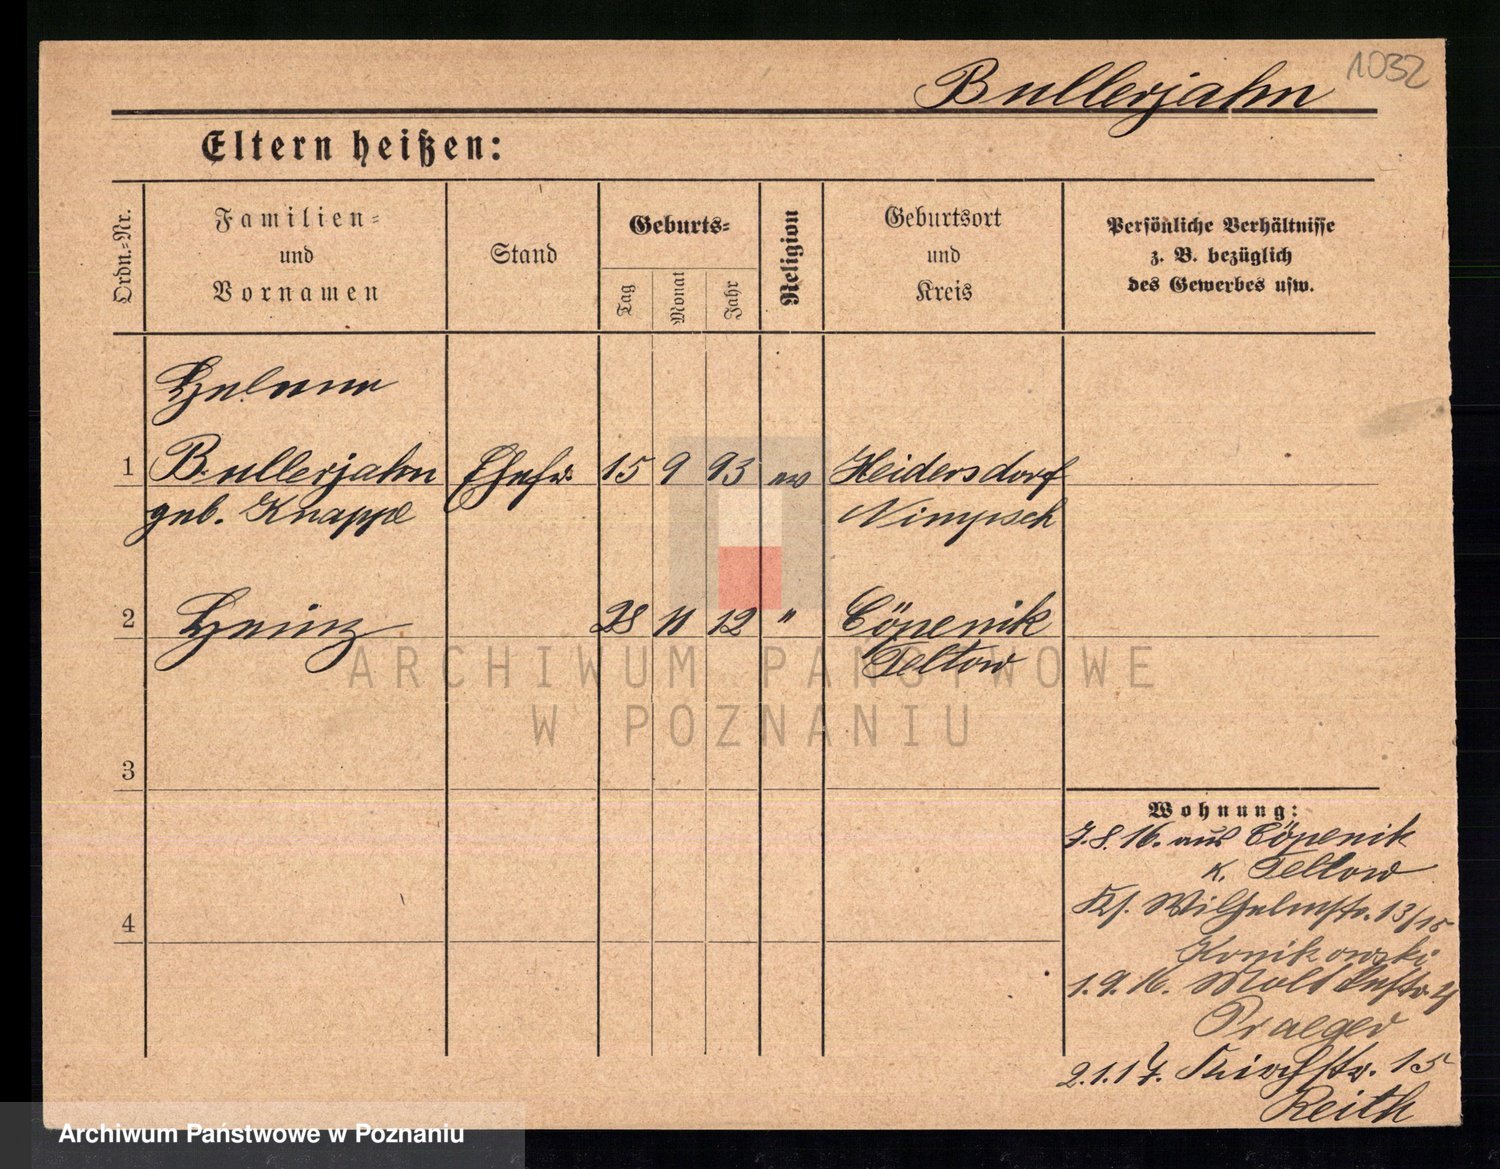 1032
Bullerjahn
Eltern heißen:
Ordn.-Nr.
Familien-
und
Vornamen
Stand
Geburts-
Tag
Monat
Jahr
Religion
Geburtsort
und
Kreis
Persönliche Verhältnisse
z. B. bezüglich
des Gewerbes usw.
Helene
1 Bullerjahn Ehefr. 15 9 93 ev Heidersdorf
geb. Knappe Nimpsch
2 Heinz 28 11 12 " Cöpenik
Teltow
ARCHIWUM PAŃSTWOWE
W POZNANIU
3
4
Wohnung:
7.8.16. aus Cöpenik
K. Teltow
Ks. Wilhelmstr. 13/15
Konikowski
1.9.16. Moltkestr. 4
Praeger
2.1.17. Kirchstr. 15
Reith
Archiwum Państwowe w Poznaniu